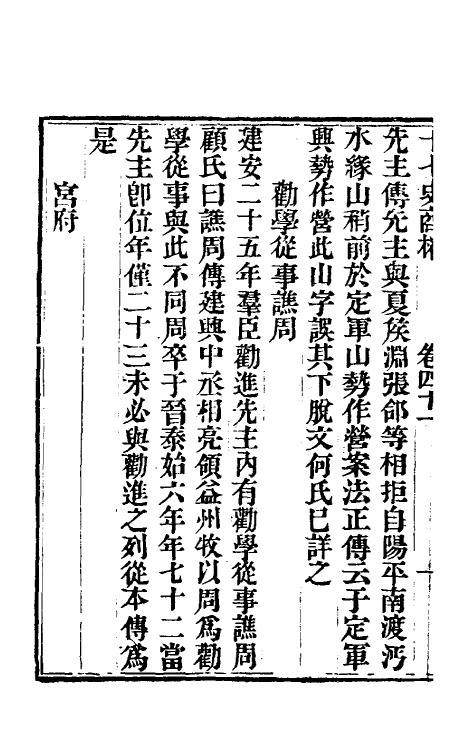 十七史商榷　卷四十一
先主傳先主與夏侯淵張郃等相拒自陽平南渡沔
水緣山稍前於定軍山勢作營案法正傳云于定軍
興勢作營此山字誤其下脫文何氏已詳之
勸學從事譙周
建安二十五年羣臣勸進先主內有勸學從事譙周
顧氏曰譙周傳建興中丞相亮領益州牧以周爲勸
學從事與此不同周卒于晉泰始六年年七十二當
先主卽位年僅二十三未必與勸進之列從本傳爲
是
宮府